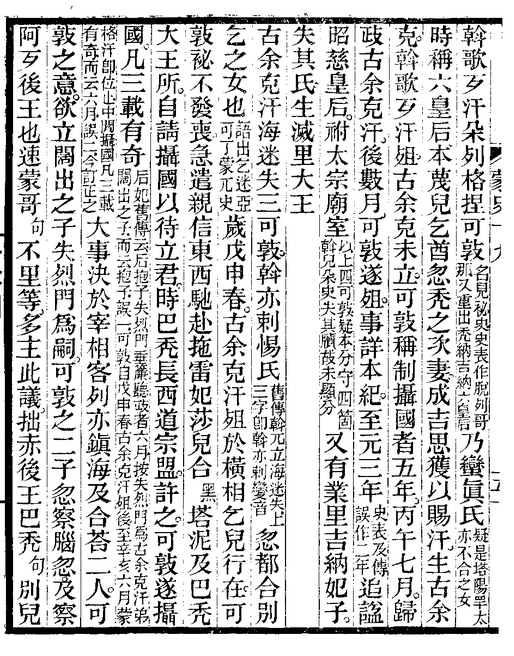 斡歌歹汗朵列格捏可敦名見祕史史表作脫列哥那又重出禿納吉納六皇后乃蠻眞氏疑是塔陽罕太亦不合之女
時稱六皇后本蔑兒乞酋忽禿之次妻成吉思獲以賜汗生古余
克斡歌歹汗殂古余克未立可敦稱制攝國者五年丙午七月歸
政古余克汗後數月可敦遂殂事詳本紀至元三年史表及傳誤作二年追諡
昭慈皇后祔太宗廟室以上四可敦疑本分守四箇斡兒朵史失其故未顯分又有業里吉納妃子
失其氏生滅里大王
古余克汗海迷失三可敦斡亦剌惕氏舊傳斡元立海迷失上三字卽斡亦剌變音忽都合別
乞之女也語出乞迷亞可丁蒙兀史歲戊申春古余克汗殂於橫相乞兒行在可
敦祕不發喪急遣親信東西馳赴拖雷妃莎兒合黑塔泥及巴禿
大王所自請攝國以待立君時巴禿長西道宗盟許之可敦遂攝
國凡三載有奇后妃舊傳云后抱子失烈門垂簾聽政者六月按失烈門爲古余克汗弟闊出之子而云抱子誤一可敦自戊申春古余克汗殂後至辛亥六月蒙
格汗卽位止中間攝國凡三載有奇而云六月誤二今訂正之大事決於宰相客列亦鎭海及合荅二人可
敦之意欲立闊出之子失烈門爲嗣可敦之二子忽察腦忽及察
阿歹後王也速蒙哥句不里等多主此議拙赤後王巴禿句別兒